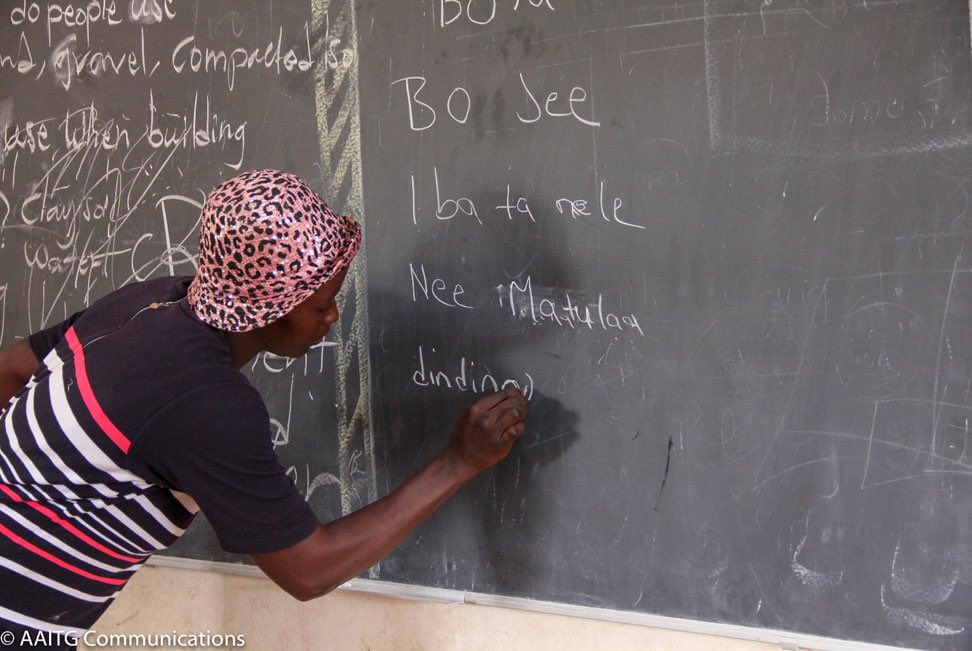 do people use
nd, gravel, Compacted So
use when building
Clay soil
Water
Bo Jee
I ba ta nele
Nee i Matulaa
dindingo
© AAITG Communications